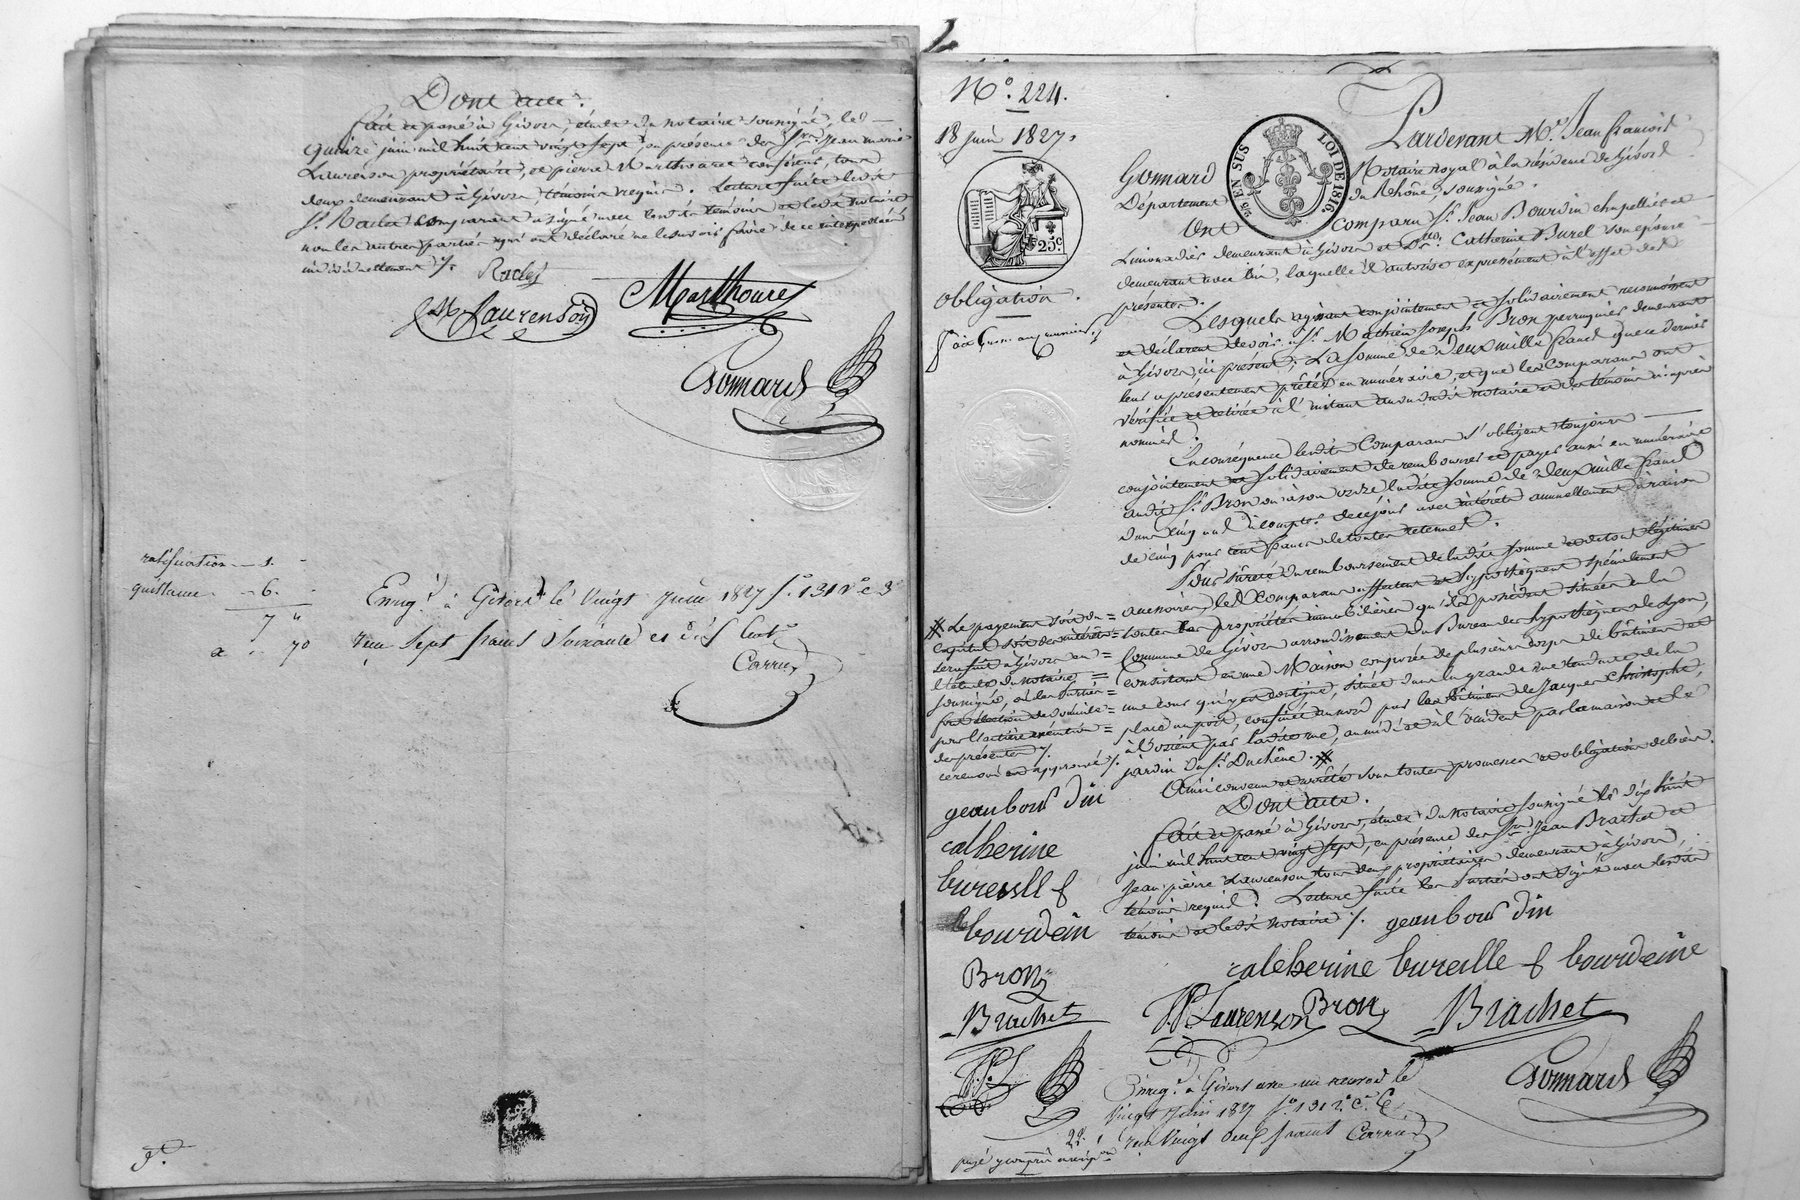 Dont acte.
fait et passé à Givors, étude du notaire soussigné, le
quinze juin mil huit cent vingt sept, en présence des Srs Jean marie
Laurenson propriétaire, et pierre Marthouret confiseur, tous
deux demeurant à Givors, témoins requis. Lecture faite ledit
Sr. Raclet comparant a signé avec lesdits témoins et ledit notaire
non les autres parties qui ont déclaré ne le savoir faire de ce interpellées
individuellement ./.
Raclet
JM Laurenson
Marthouret
Gonnard
ratification — 1.
quittance — 6.
7 "
70
Enregé. à Givors le Vingt Juin 1827 fo. 131 Vo. c 3
reçu Sept francs Soixante et dix Cent.
Carru
No. 224.
18 juin 1827.
25c
Obligation.
25 EN SUS
LOI DE 1816.
Pardevant Me. Jean françois
Gonnard Notaire royal à la résidence de Givors
Département du Rhône, soussigné.
Ont comparu Sr. Jean Bourdin chapellier et
Limonadier demeurant à Givors et De. Catherine Burel son épouse
demeurant avec lui, laquelle il autorise expressément à l'effet des
présentes.
Lesquels agissant conjointement et solidairement reconnaissent
et déclarent devoir à Sr. Mathieu Joseph Bron perruquier demeurant
à Givors, ici présent, La somme de Deux mille francs que ce dernier
leur a présentement prêtée en numéraire, et que les Comparans ont
vérifiée et retirée à l'instant au vu dudit notaire et des témoins ci après
nommés.
En conséquence lesdits Comparans s'obligent toujours
conjointement et solidairement de rembourser et payer aussi en numéraire
audit Sr. Bron ou à son ordre ladite somme de Deux mille francs
dans cinq ans à compter de ce jour avec intérêts annuellement à raison
de cinq pour cent francs de toutes retenues.
Pour sûreté du remboursement de ladite somme et de tous légitimes
accessoires, les Comparans affectent et hypothèquent spécialement
toutes les propriétés immobilières qu'ils possèdent situées en la
Commune de Givors arrondissement du Bureau des hypothèques de Lyon,
consistant en une Maison composée de plusieurs corps de bâtimens et
une cour qui y est contigue, située dans la grande rue tendante de la
place au port, confinée au nord par les bâtimens de Jacques Christophe,
à l'orient par ladite rue, au midi et à l'occident par la maison et le
jardin du Sr. Duchêne. #
# Le payement soit du
capital soit des intérêts
sera fait à Givors en
l'étude du notaire
soussigné, où les parties
font élection de domicile
pour l'entière exécution
des présentes ./.
ce renvoi est approuvé ./.
Ainsi convenu et arrêté sous toutes promesses et obligations de biens.
Dont acte.
fait et passé à Givors, étude du Notaire soussigné le dix huit
juin mil huit cent vingt sept, en présence des Srs. Jean Brachet et
Jean pierre Laurenson tous deux propriétaires demeurant à Givors,
témoins requis. Lecture faite les parties ont signé avec lesdits
témoins et ledit notaire ./.
geanbour din
catherine bureille f bourdeine
J.P. Laurenson
Bron
Brachet
Gonnard
geanbour din
catherine
buresll f
bourdein
Bron
Brachet
J.P.L
Enregé. à Givors
vingt Juin 1827 fo. 131
reçu Vingt deux francs
Carru